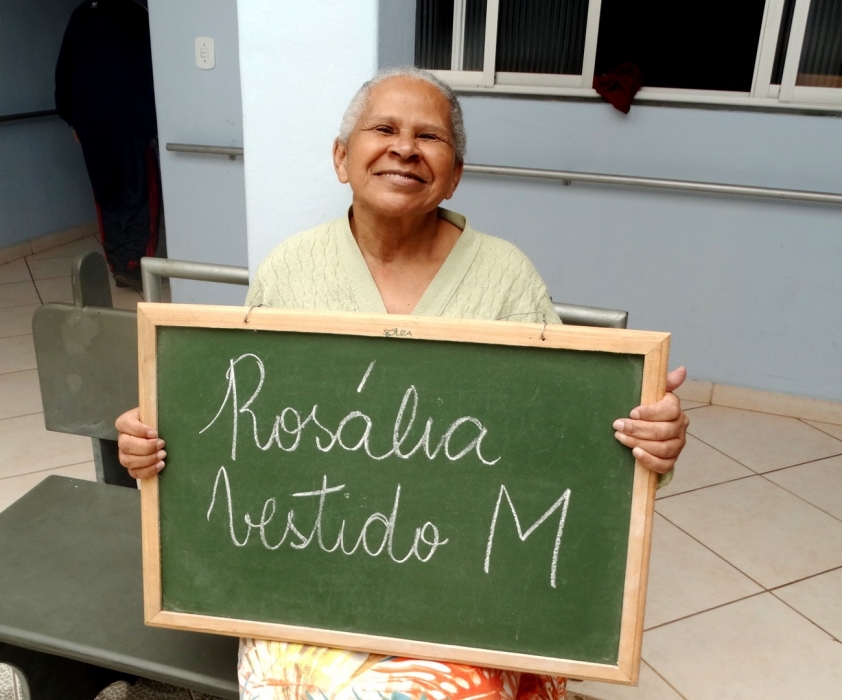 SOUZA
Rosália
Vestido M